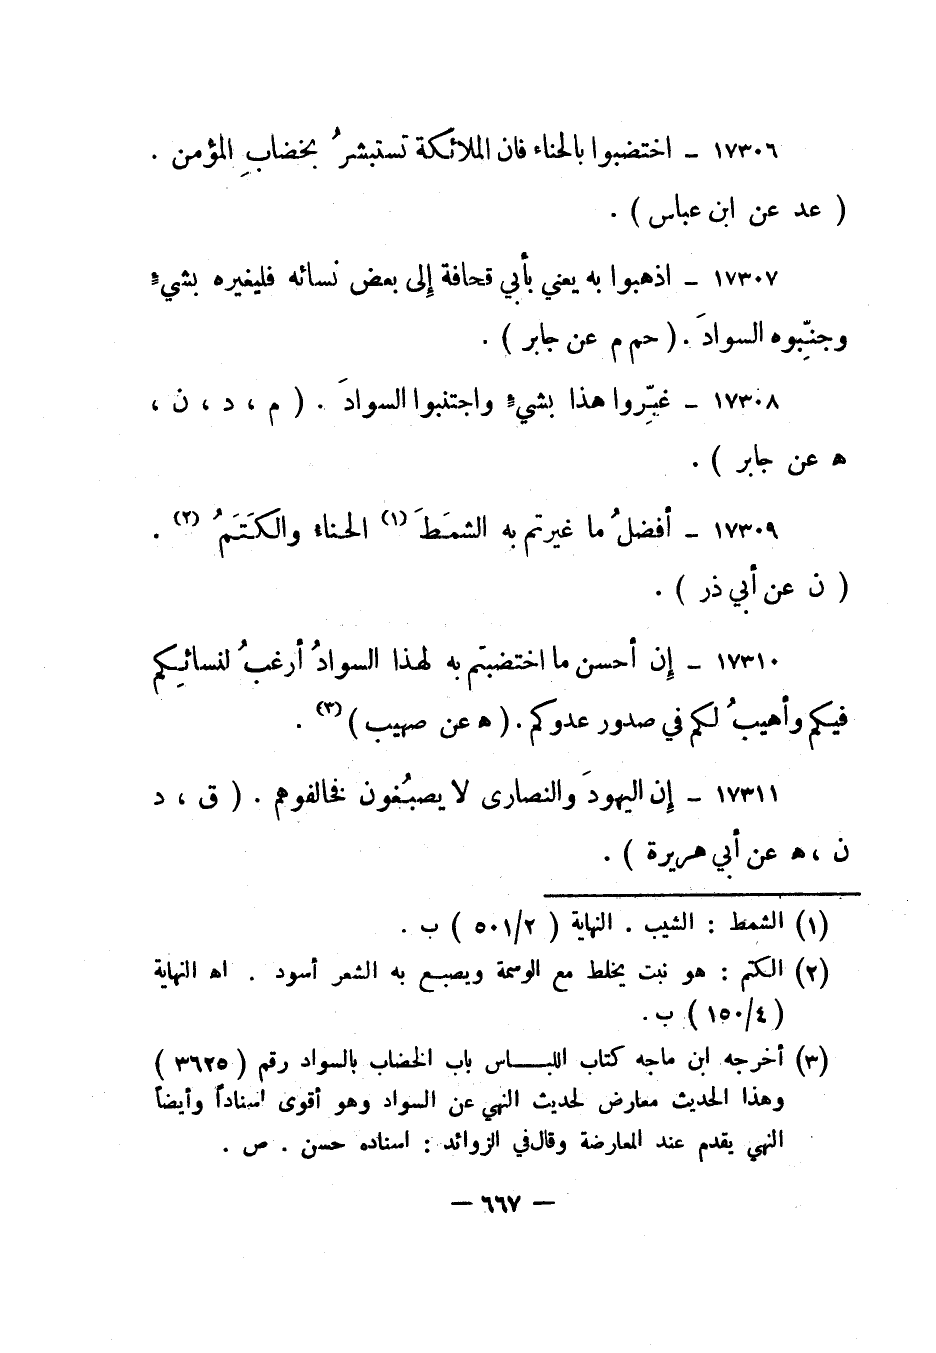 ١٧٣٠٦ ــ اختضبوا بالحناء فان الملائكة تستبشرُ بخضابِ المؤمن .
( عد عن ابن عباس ) .
١٧٣٠٧ ــ اذهبوا به يعني بأبي قحافة إلى بعض نسائه فليغيره بشيءٍ
وجنِّبوه السوادَ . ( حم م عن جابر ) .
١٧٣٠٨ ــ غيِّروا هذا بشيءٍ واجتنبوا السوادَ . ( م ، د ، ن ،
ه عن جابر ) .
١٧٣٠٩ ــ أفضلُ ما غيرتم به الشمَطَ (١) الحناء والكَتَمُ (٢) .
( ن عن أبي ذر ) .
١٧٣١٠ ــ إن أحسن ما اختضبتم به لهذا السوادُ أرغبُ لنسائكم
فيكم وأهيبُ لكم في صدور عدوكم . ( ه عن صهيب ) (٣) .
١٧٣١١ ــ إن اليهودَ والنصارى لا يصبُغون فخالفوهم . ( ق ، د
ن ، ه عن أبي هريرة ) .
(١) الشمط : الشيب . النهاية ( ٥٠١/٢ ) ب .
(٢) الكتم : هو نبت يخلط مع الوسمة ويصبغ به الشعر أسود . اه النهاية
( ١٥٠/٤ ) ب .
(٣) أخرجه ابن ماجه كتاب اللبــاس باب الخضاب بالسواد رقم ( ٣٦٢٥ )
وهذا الحديث معارض لحديث النهي عن السواد وهو أقوى اسناداً وأيضاً
النهي يقدم عند المعارضة وقال في الزوائد : اسناده حسن . ص .
— ٦٦٧ —